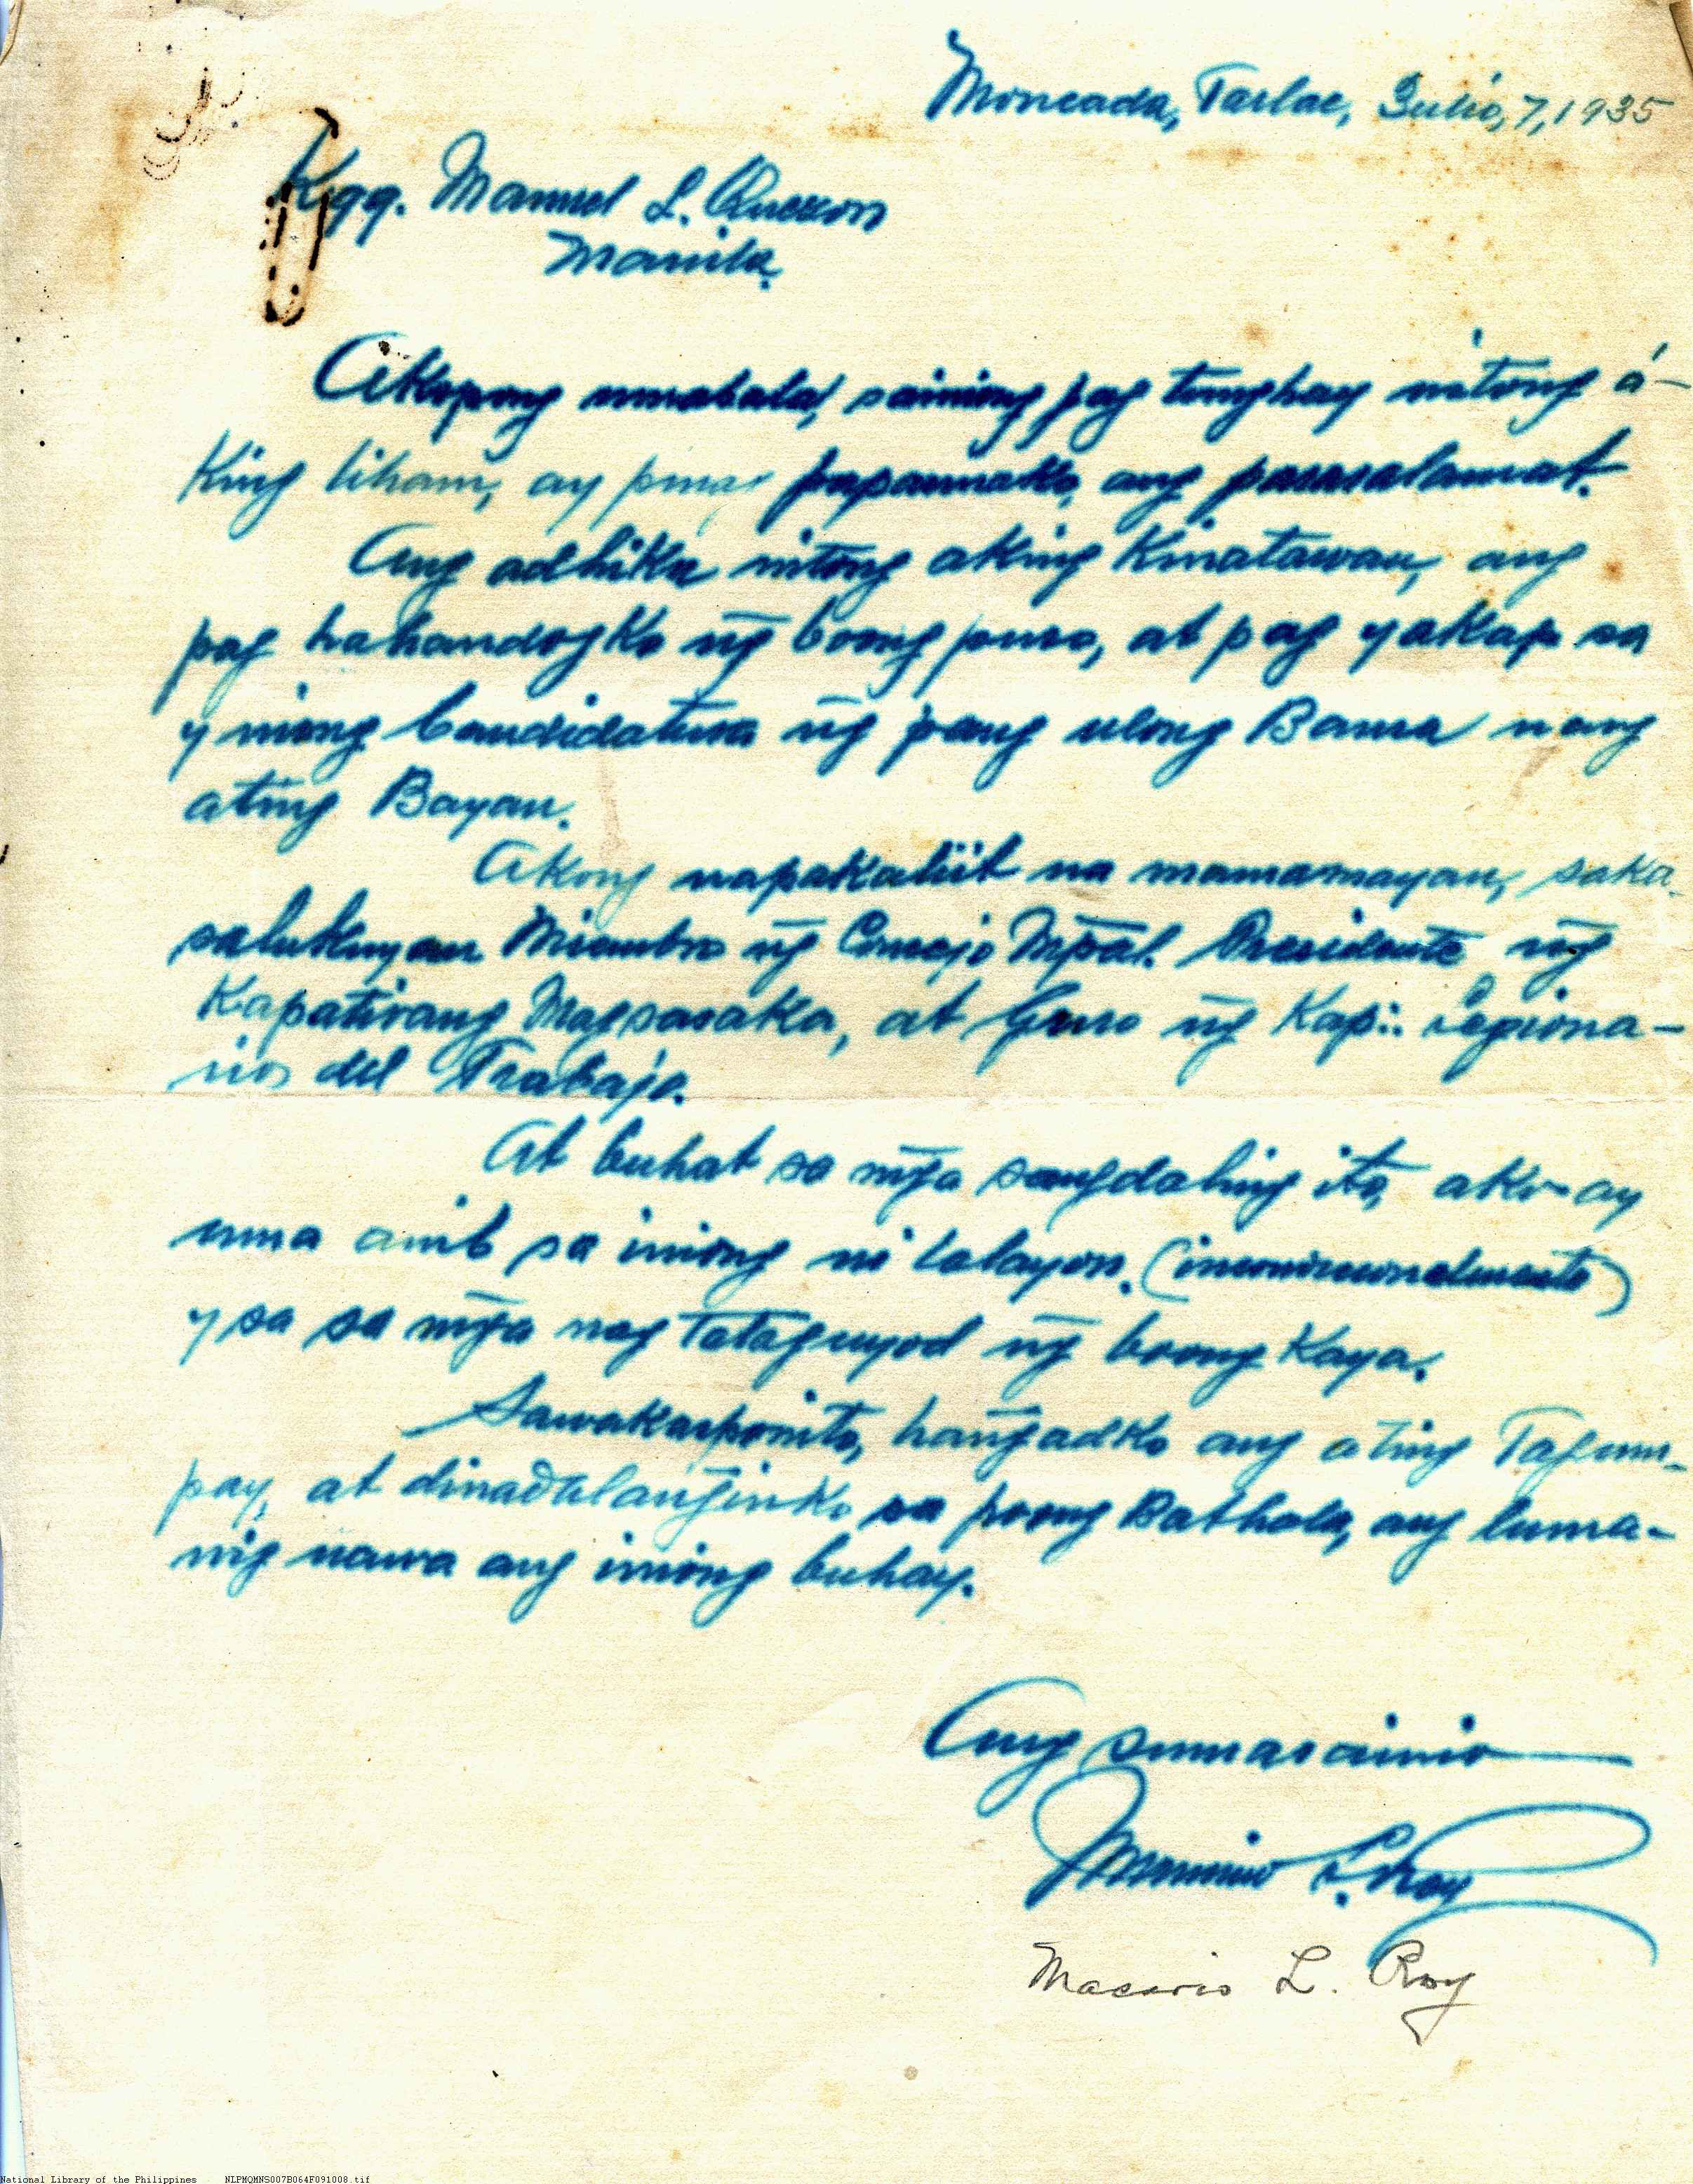 Moncada, Tarlac, Julio, 7, 1935
Kgg. Manuel L. Quezon
Manila.
Akopong umabala, sainiong pag tunghay nitong á-
king liham, ay papaunako, ang pasasalamat.
Ang adhika nitong aking Kinatawan, ang
pag hahandogko ng̃ boong puso, at pag yakap sa
yniong Candidatura ng̃ pang ulong Bansa nang
ating Bayan.
Akong napakaliit na mamamayan, saka-
salukuyan Miembro ng̃ Concejo Mpal. Presidente ng̃
Kapatirang Magsasaka, at Guro ng̃ Kap:. Legiona-
rios del Trabajo.
At buhat sa mg̃a sangdaling ito, ako-ay
uma anib sa iniong ni lalayon. (incondicionalmente)
ysa sa mg̃a nag tataguyod ng̃ boong Kaya.
Sawakasponito, hang̃adko ang ating Tagum-
pay, at dinadalang̃inko sa poong Bathala, ang luma-
wig nawa ang iniong buhay.
Ang sumasainio
Macario L. Roy
Macario L. Roy
National Library of the Philippines NLPMQMNS007B064F091008.tif